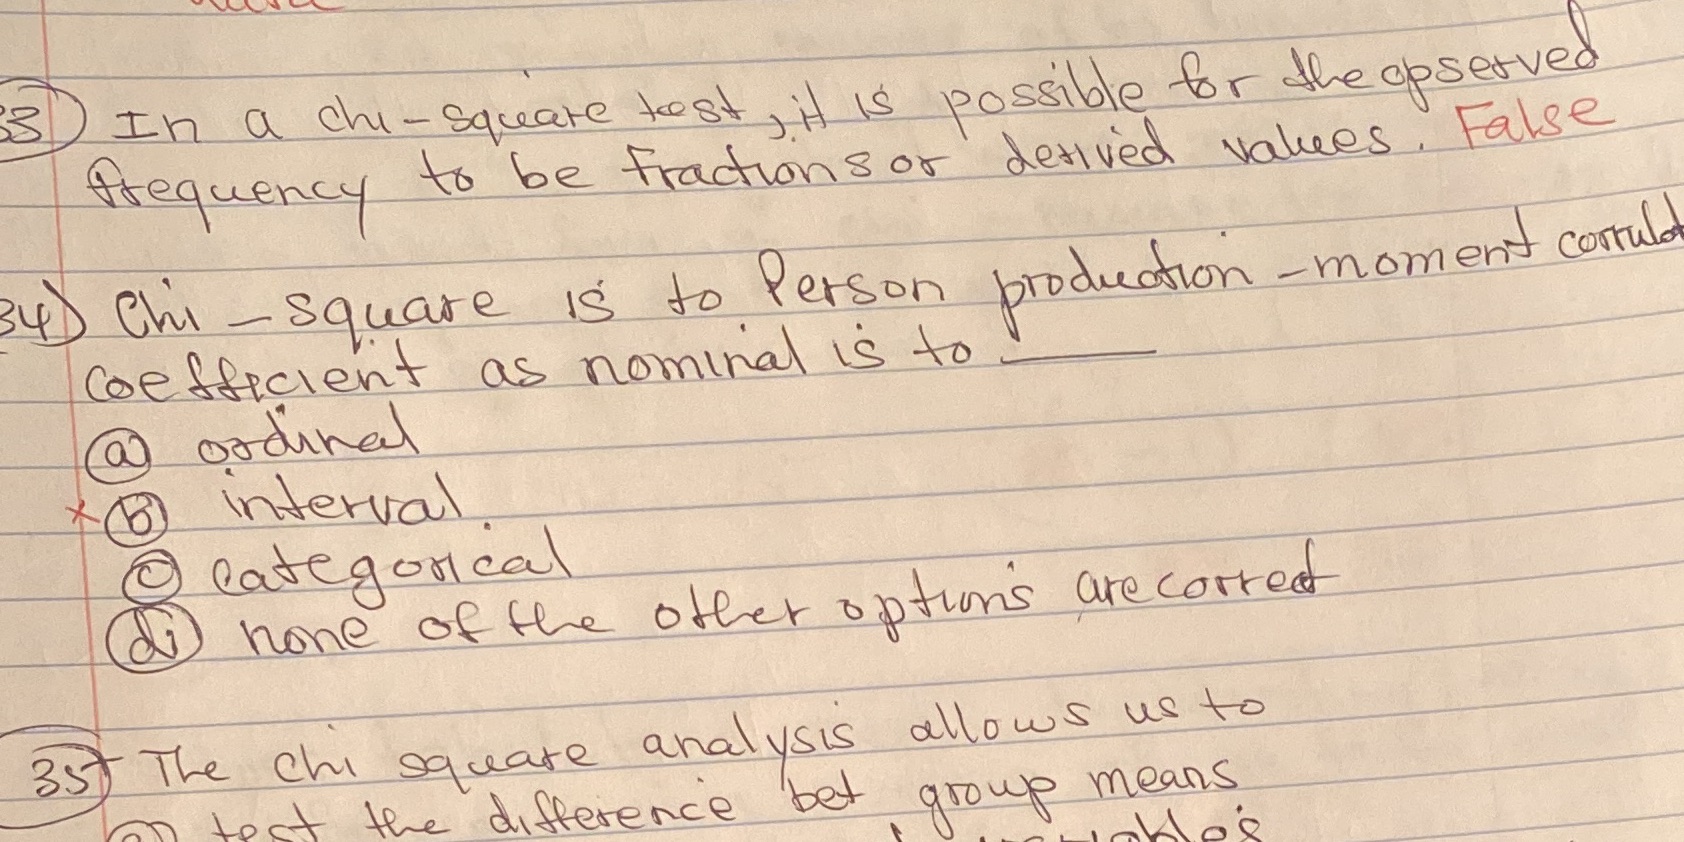 33) In a chi-square test, it is possible for the opserved
frequency to be fractions or derived values. False
34) Chi-square is to Person production-moment
coefficient as nominal is to ___
a) ordinal
x b) interval.
c) categorical
d) none of the other options are correct
35) The chi square analysis allows us to
test the difference bet group means